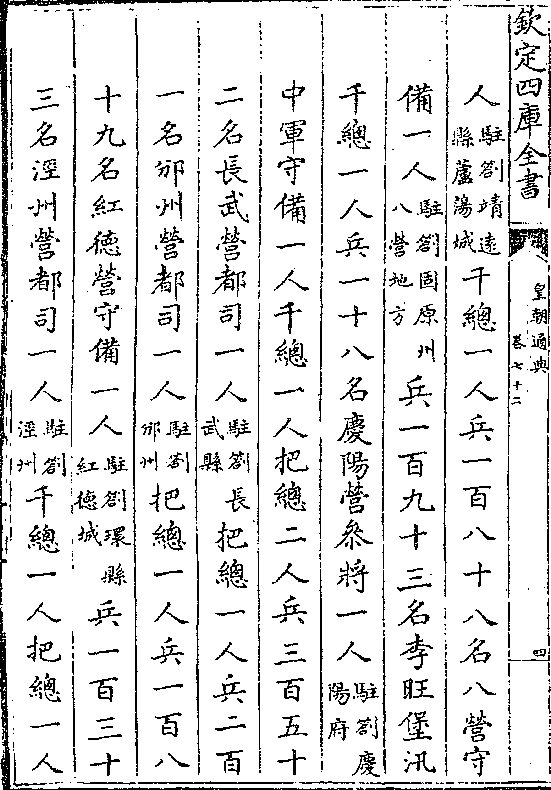 欽定四庫全書
皇朝通典
卷七十二
四
人駐劄靖遠縣蘆溝城千總一人兵一百八十八名八營守
備一人駐劄固原州八營地方兵一百九十三名李旺堡汛
千總一人兵一十八名慶陽營叅將一人駐劄慶陽府
中軍守備一人千總一人把總二人兵三百五十
二名長武營都司一人駐劄長武縣把總一人兵二百
一名邠州營都司一人駐劄邠州把總一人兵一百八
十九名紅德營守備一人駐劄環縣紅德城兵一百三十
三名涇州營都司一人駐劄涇州千總一人把總一人